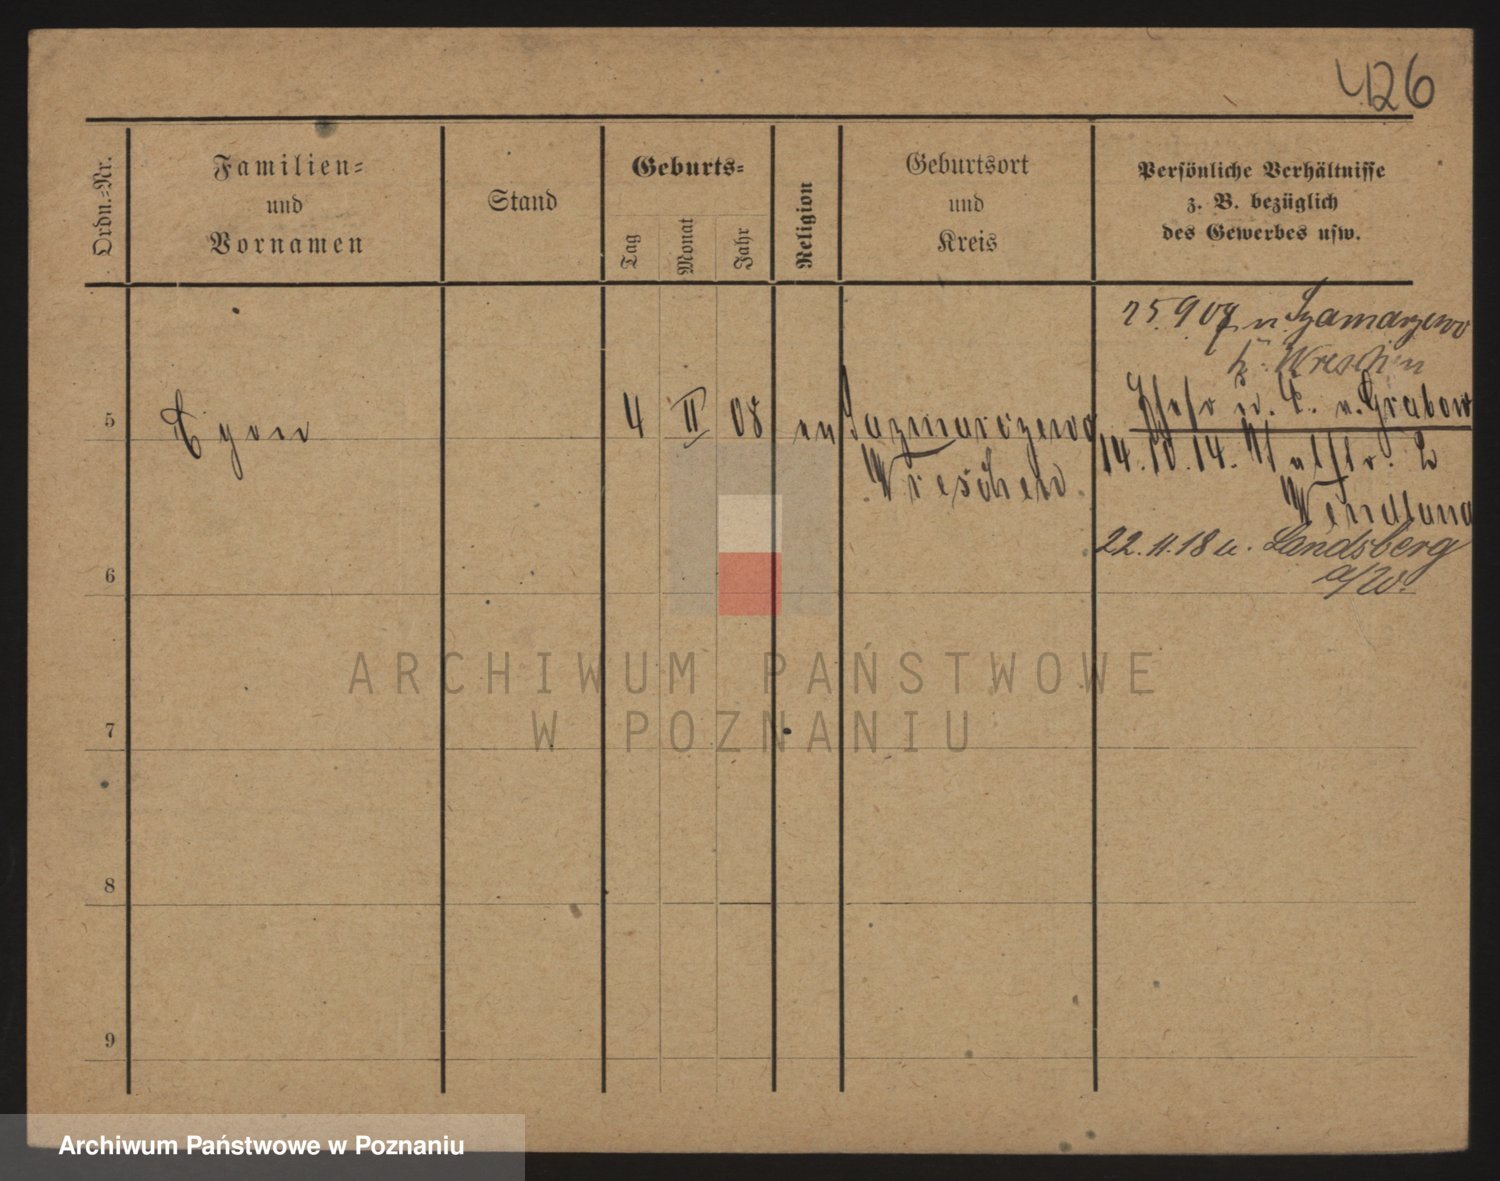 426
Ordn.-Nr.
Familien-
und
Vornamen
Stand
Geburts-
Tag
Monat
Jahr
Religion
Geburtsort
und
Kreis
Persönliche Verhältnisse
z. B. bezüglich
des Gewerbes usw.
25.9 09 n. Szamarzewo
K. Wreschen
5 Egon 4 II 08 en Sazmarczewo
u. E. v. Grabow
Wreschen
14.10.14.
2
Wendland
22.11.18 u. Landsberg
a/W.
6
7
8
9
ARCHIWUM PAŃSTWOWE
W POZNANIU
Archiwum Państwowe w Poznaniu